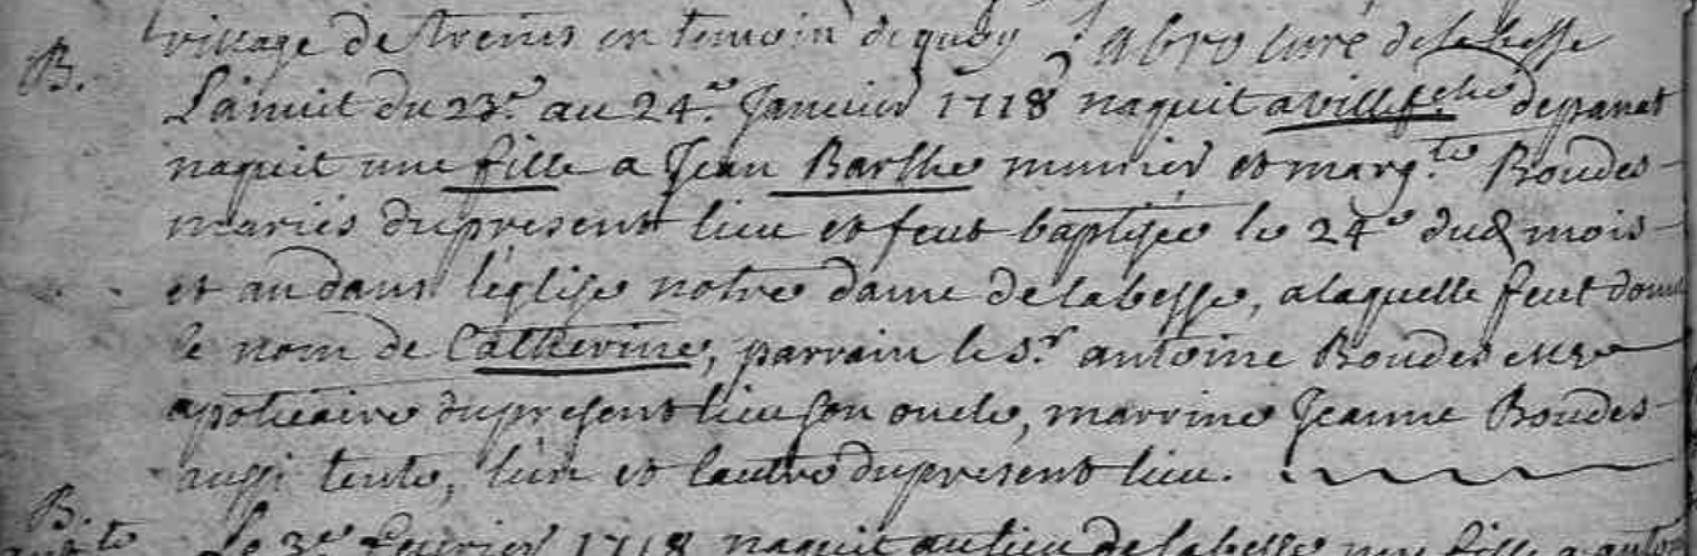 village de en temoin de quoy abro curé de labesse
B. La nuit du 23e au 24e Janvier 1718 naquit a villefche depanat
naquit une fille a Jean Barthe munier et margte Boudes
mariés du present lieu et feut baptisée le 24e dud mois
et an dans l'eglise notre dame de labesse, a laquelle feut donné
le nom de Catherine, parrain le sr antoine Boudes mre
apoticaire du present lieu son oncle, marrine Jeanne Boudes
aussi tente, l'un et lautre du present lieu.
B. Le 3e fevrier 1718 naquit au lieu de labesse une fille